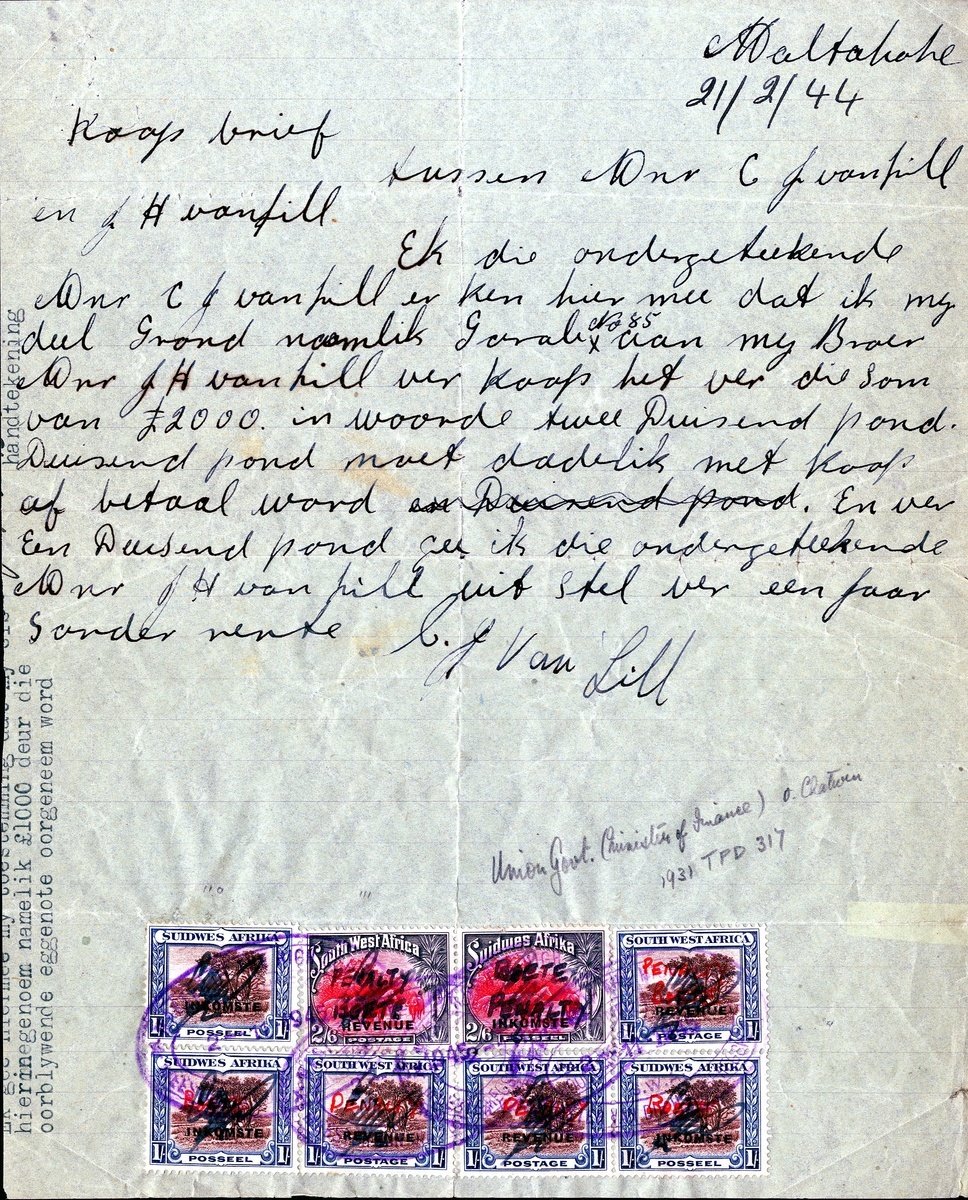 Maltahohe
21/2/44
Koop brief
tussen Mnr C J vanlill
en J H vanlill.
Ek die ondergeteekende
Mnr C J vanlill er ken hier mee dat ik my
deel Grond naamlik Garab x No 85 aan my Broer
Mnr J H vanlill ver koop het ver die Som
van £2000. in woorde twee Duisend pond.
Duisend pond moet dadelik met koop
af betaal word en Duisend pond. En ver
Een Duisend pond gee ik die ondergeteekende
Mnr J H van lill uit stel ver een Jaar
Sonder rente C. J Van Lill
Union Govt. (Minister of Finance) v. Chatwin
1931 TPD 317
handtekening
Ek gee hiermee my toestemming dat my
hierinegenoem namelik £1000 deur die
oorblywende eggenote oorgeneem word
SUIDWES AFRIKA
INKOMSTE
1/- POSSEEL 1/-
South West Africa
PENALTY
BOETE
REVENUE
2/6 POSTAGE
Suidwes Afrika
BOETE
PENALTY
INKOMSTE
2/6
SOUTH WEST AFRICA
PENALTY
BOETE
REVENUE
1/- POSTAGE 1/-
SUIDWES AFRIKA
BOETE
INKOMSTE
1/- POSSEEL 1/-
SOUTH WEST AFRICA
PENALTY
REVENUE
1/- POSTAGE 1/-
SOUTH WEST AFRICA
PENALTY
REVENUE
1/- POSTAGE 1/-
SUIDWES AFRIKA
BOETE
INKOMSTE
1/- POSSEEL 1/-